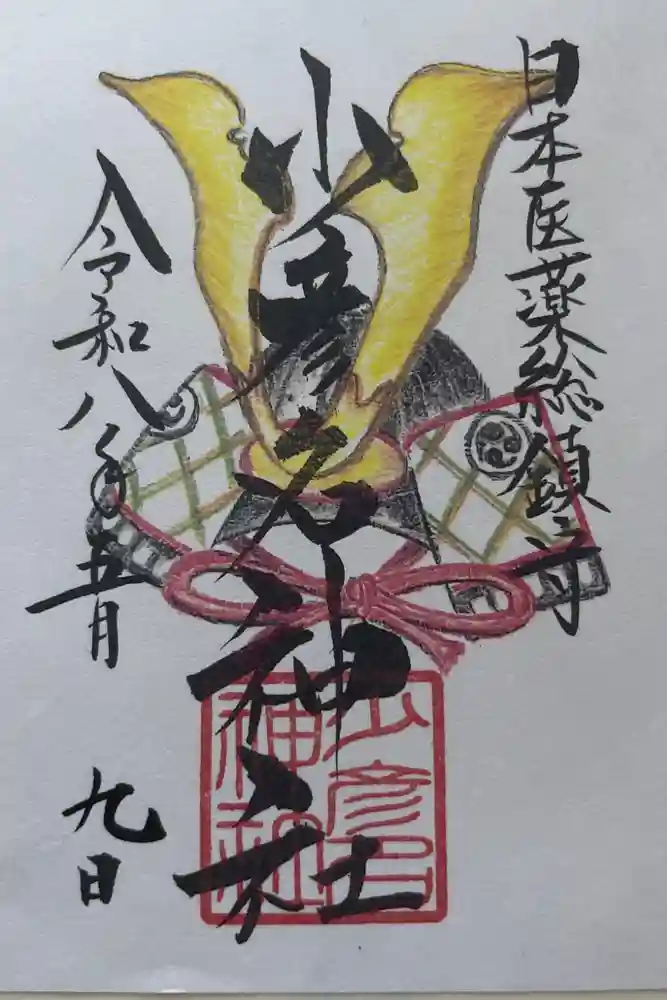 日本医薬総鎮守
少彦名神社
令和八年五月
九日
少彦名
神社